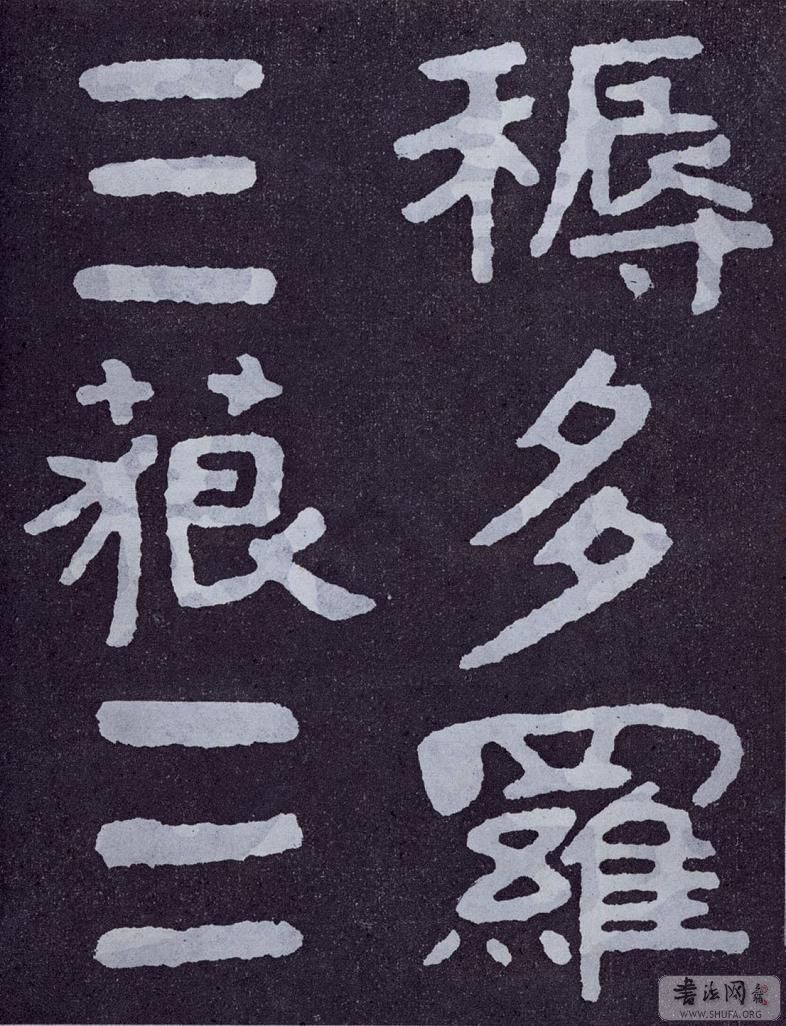 耨多羅
三藐三
書法网
WWW.SHUFA.ORG